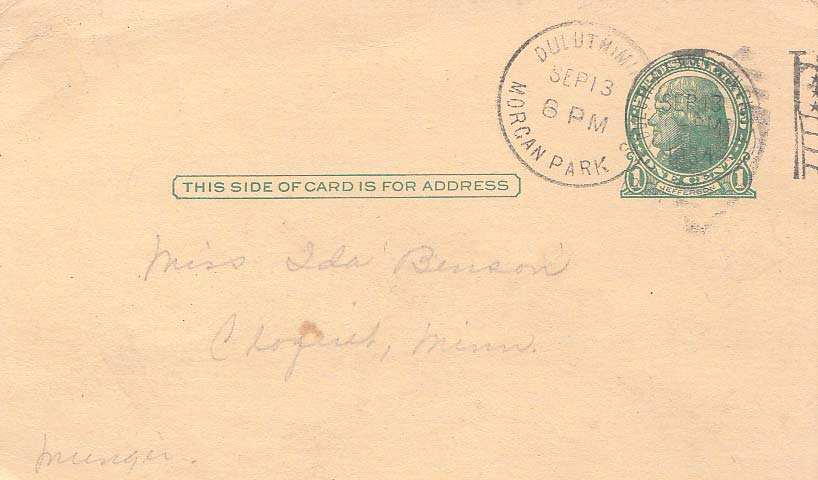 DULUTH MINN
SEP 13
6 PM
MORGAN PARK
SEP 13
PM
U.S. POSTAL CARD
ONE CENT
1 JEFFERSON 1
THIS SIDE OF CARD IS FOR ADDRESS
Miss Ida Benson
Cloquet, Minn.
Munger.